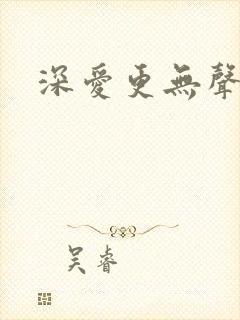 深愛更無聲
吴睿